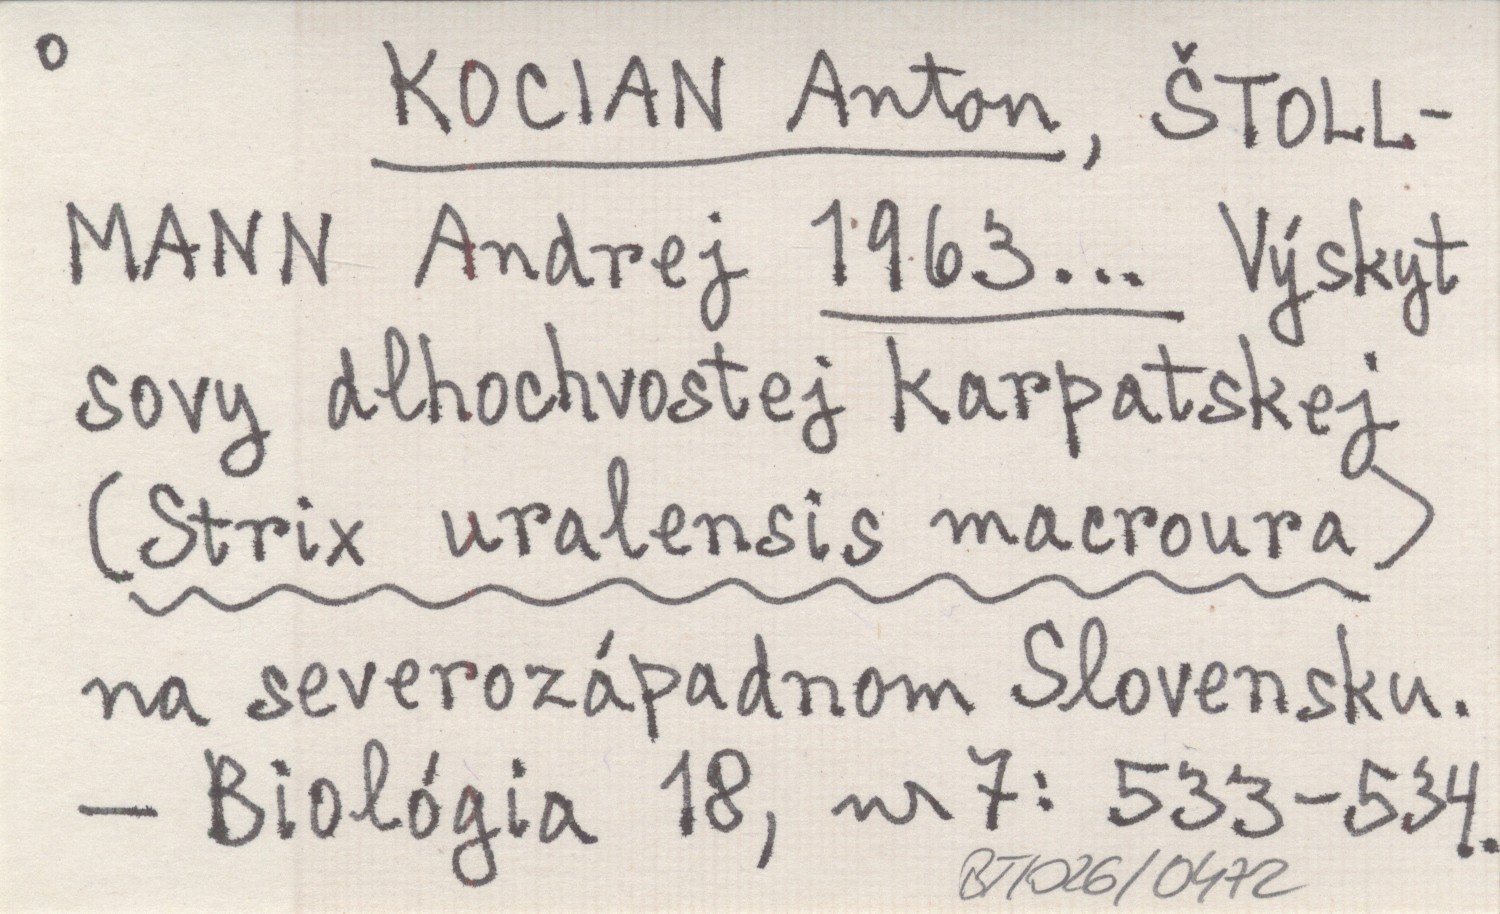 o
KOCIAN Anton, ŠTOLL-
MANN Andrej 1963... Výskyt
sovy dlhochvostej karpatskej
(Strix uralensis macroura)
na severozápadnom Slovensku.
— Biológia 18, nr 7: 533-534.
BT/026/0472